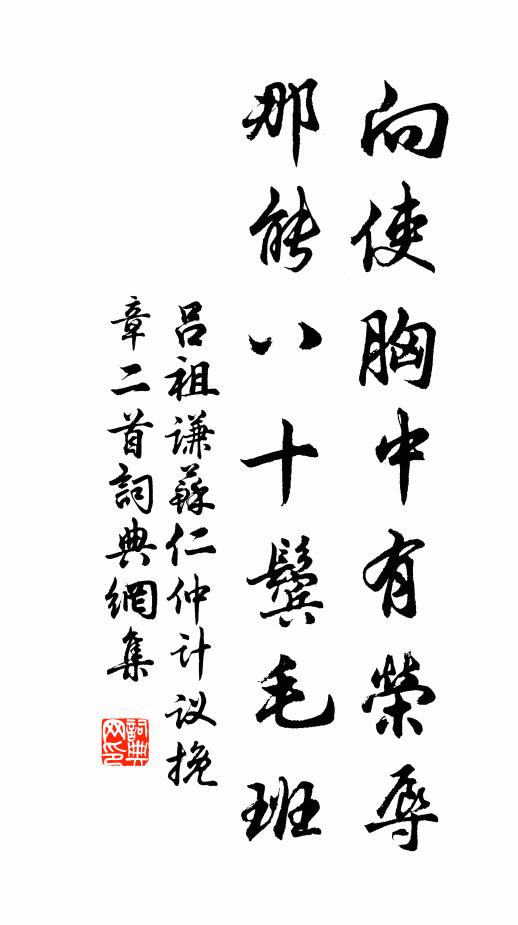 向使胸中有榮辱
那能八十鬓毛班
吕祖谦蘇仁仲计议挽
章二首詞典網集
詞典网印